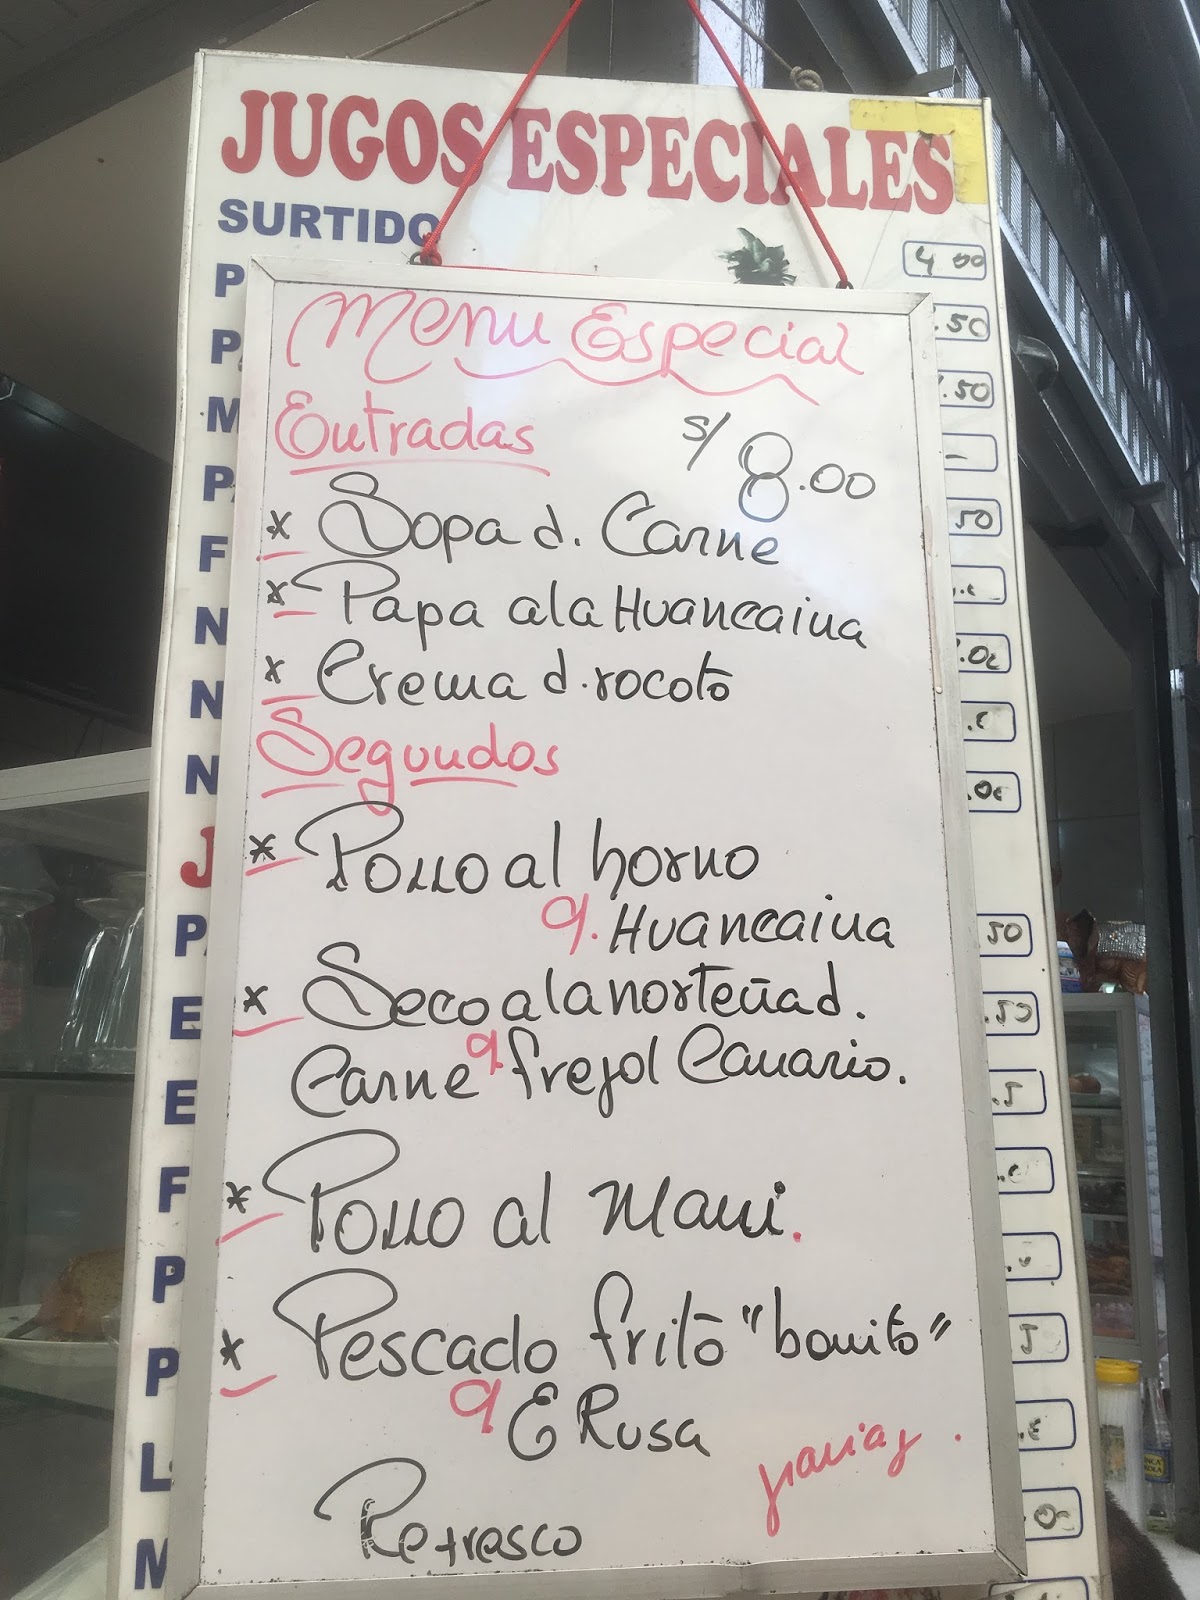 JUGOS ESPECIALES
SURTIDO 4.00
P .50
P .50
M
P 50
F
N .0c
N
N .0c
J
P 50
E .50
E
F
P
P
L
M
Menu Especial
Entradas
S/ 8.00
* Sopa d. Carne
* Papa a la Huancaina
* Crema d. rocoto
Segundos
* Pollo al horno
q. Huancaina
* Seco a la norteña d.
Carne q. frejol Canario.
* Pollo al Mani.
* Pescado frito "bonito"
q E Rusa
Refresco